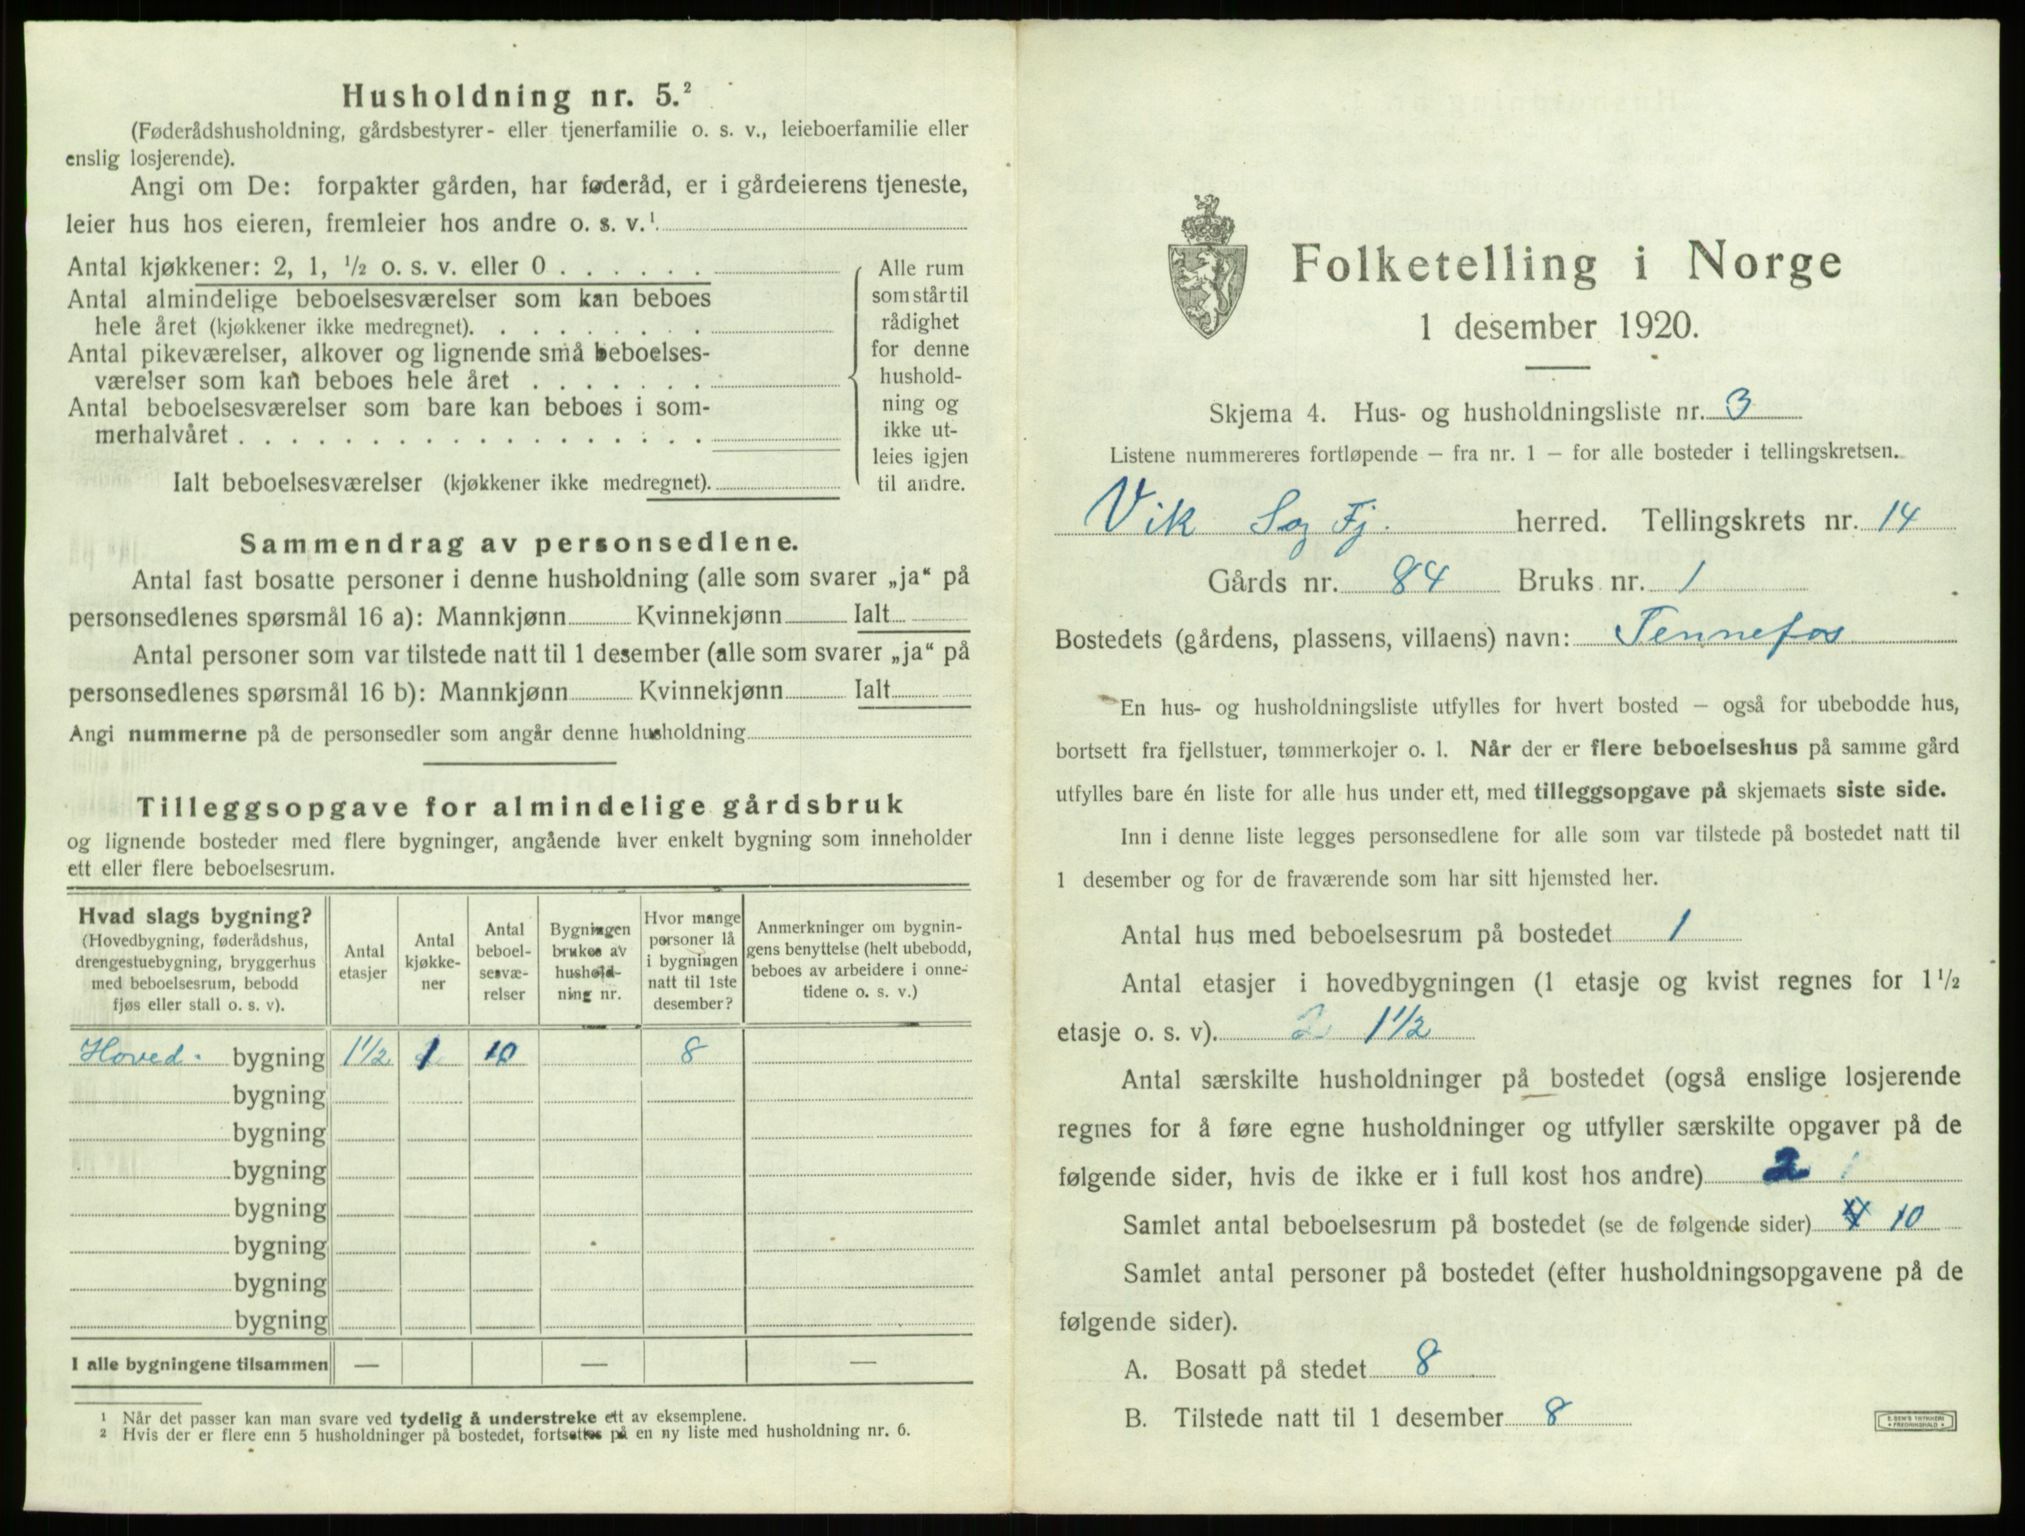 Husholdning nr. 5.²
(Føderådshusholdning, gårdsbestyrer- eller tjenerfamilie o. s. v., leieboerfamilie eller
enslig losjerende).
Angi om De: forpakter gården, har føderåd, er i gårdeierens tjeneste,
leier hus hos eieren, fremleier hos andre o. s. v.¹
Antal kjøkkener: 2, 1, ½ o. s. v. eller 0 . . . . . .
Antal almindelige beboelsesværelser som kan beboes
hele året (kjøkkener ikke medregnet). . . . . . . . .
Antal pikeværelser, alkover og lignende små beboelses-
værelser som kan beboes hele året . . . . . . .
Antal beboelsesværelser som bare kan beboes i som-
merhalvåret . . . . . . . . . . . . . . . . . .
Ialt beboelsesværelser (kjøkkener ikke medregnet).
Alle rum
som står til
rådighet
for denne
hushold-
ning og
ikke ut-
leies igjen
til andre.
Sammendrag av personsedlene.
Antal fast bosatte personer i denne husholdning (alle som svarer „ja“ på
personsedlenes spørsmål 16 a): Mannkjønn Kvinnekjønn Ialt
Antal personer som var tilstede natt til 1 desember (alle som svarer „ja“ på
personsedlenes spørsmål 16 b): Mannkjønn Kvinnekjønn Ialt
Angi nummerne på de personsedler som angår denne husholdning
Tilleggsopgave for almindelige gårdsbruk
og lignende bosteder med flere bygninger, angående hver enkelt bygning som inneholder
ett eller flere beboelsesrum.
Hvad slags bygning?
(Hovedbygning, føderådshus,
drengestuebygning, bryggerhus
med beboelsesrum, bebodd
fjøs eller stall o. s. v).
Antal
etasjer
Antal
kjøkke-
ner
Antal
beboel-
sesvæ-
relser
Bygningen
brukes av
hushold-
ning nr.
Hvor mange
personer lå
i bygningen
natt til 1ste
desember?
Anmerkninger om bygnin-
gens benyttelse (helt ubebodd,
beboes av arbeidere i onne-
tidene o. s. v.)
Hoved. bygning 1½ 1 10 8
bygning
bygning
bygning
bygning
bygning
bygning
bygning
I alle bygningene tilsammen — — —
¹ Når det passer kan man svare ved tydelig å understreke ett av eksemplene.
² Hvis der er flere enn 5 husholdninger på bostedet, fortsettes på en ny liste med husholdning nr. 6.
Folketelling i Norge
1 desember 1920.
Skjema 4. Hus- og husholdningsliste nr. 3
Listene nummereres fortløpende — fra nr. 1 — for alle bosteder i tellingskretsen.
Vik Sog Fj. herred. Tellingskrets nr. 14
Gårds nr. 84 Bruks nr. 1
Bostedets (gårdens, plassens, villaens) navn: Tennefos
En hus- og husholdningsliste utfylles for hvert bosted — også for ubebodde hus,
bortsett fra fjellstuer, tømmerkojer o. l. Når der er flere beboelseshus på samme gård
utfylles bare én liste for alle hus under ett, med tilleggsopgave på skjemaets siste side.
Inn i denne liste legges personsedlene for alle som var tilstede på bostedet natt til
1 desember og for de fraværende som har sitt hjemsted her.
Antal hus med beboelsesrum på bostedet 1
Antal etasjer i hovedbygningen (1 etasje og kvist regnes for 1½
etasje o. s. v). 2 1½
Antal særskilte husholdninger på bostedet (også enslige losjerende
regnes for å føre egne husholdninger og utfyller særskilte opgaver på de
følgende sider, hvis de ikke er i full kost hos andre) 2 1
Samlet antal beboelsesrum på bostedet (se de følgende sider) 10
Samlet antal personer på bostedet (efter husholdningsopgavene på de
følgende sider).
A. Bosatt på stedet 8
B. Tilstede natt til 1 desember 8